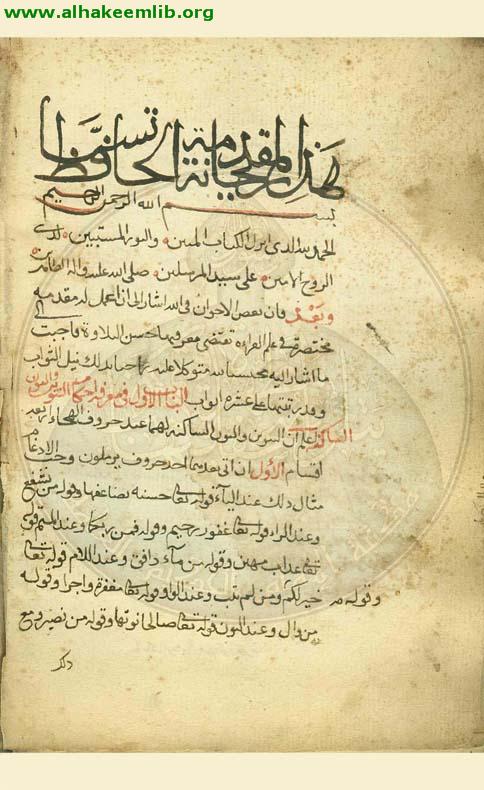 www.alhakeemlib.org
هذا المقدمة تسمى
ريحانة الحافظ
بسم الله الرحمن الرحيم
الحمد لله الذي انزل الكتاب المبين والنور المستبين لدى
الروح الامين على سيد المرسلين صلى الله عليه واله الطاهرين
وبعد فان بعض الاخوان في الله اشار الي ان اعمل له مقدمة
مختصرة في علم القراءة تقتضي معرفتها حسن التلاوة فاجبت
ما اشار اليه محتسبا لله متوكلا عليه راجيا بذلك نيل الثواب
وقد رتبتها على عشرة ابواب الباب الاول في معرفة احكام التنوين والنون
الساكنة اعلم ان التنوين والنون الساكنة لهما عند حروف الهجاء اربعة
اقسام الاول ان اتى بعدهما احد حروف يرملون وجب الادغام
مثال ذلك عند الياء قوله تعا حسنة يضاعفها وقوله من يشفع
وعند الراء قوله تعا غفور رحيم وقوله فمن ربكما وعند الميم قوله
تعا عذاب مهين وقوله من ماء دافق وعند اللام قوله تعا
خير لكم ومن لم يتب وعند الواو قوله تعا مغفرة واجرا وقوله
وقوله من
من وال وعند النون قوله تعا صالحا نوتها وقوله من نصير ومع
ذلك